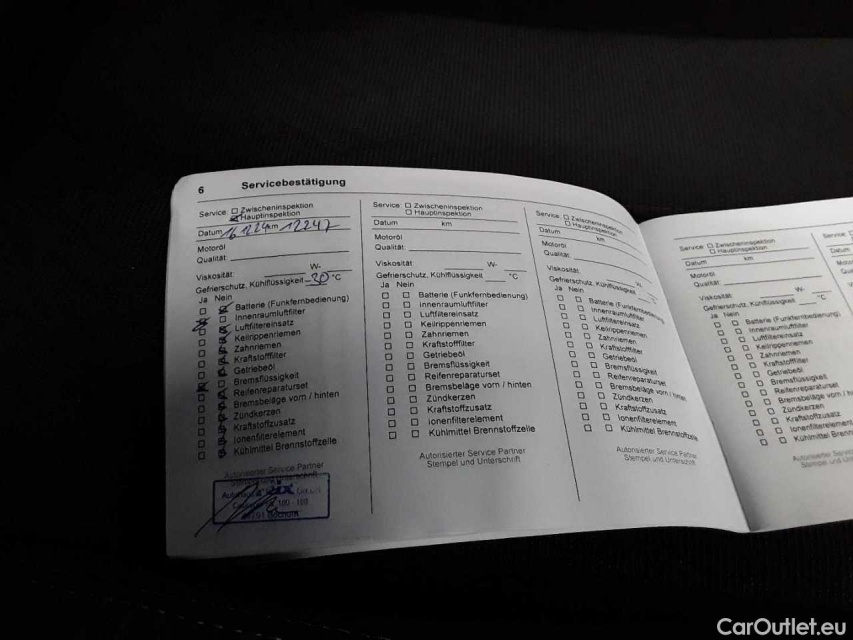 6 Servicebestätigung
Service: ☐ Zwischeninspektion
☒ Hauptinspektion
Datum 16.12.24 km 12247
Motoröl
Qualität:
Viskosität: W-
Gefrierschutz, Kühlflüssigkeit -30 °C
Ja Nein
Batterie (Funkfernbedienung)
Innenraumluftfilter
Luftfiltereinsatz
Keilrippenriemen
Zahnriemen
Kraftstofffilter
Getriebeöl
Bremsflüssigkeit
Reifenreparaturset
Bremsbeläge vorn / hinten
Zündkerzen
Kraftstoffzusatz
Ionenfilterelement
Kühlmittel Brennstoffzelle
Autorisierter Service Partner
Bochum
Service: ☐ Zwischeninspektion
☐ Hauptinspektion
Datum km
Motoröl
Qualität:
Viskosität: W-
Gefrierschutz, Kühlflüssigkeit °C
Ja Nein
☐ ☐ Batterie (Funkfernbedienung)
☐ ☐ Innenraumluftfilter
☐ ☐ Luftfiltereinsatz
☐ ☐ Keilrippenriemen
☐ ☐ Zahnriemen
☐ ☐ Kraftstofffilter
☐ ☐ Getriebeöl
☐ ☐ Bremsflüssigkeit
☐ ☐ Reifenreparaturset
☐ ☐ Bremsbeläge vorn / hinten
☐ ☐ Zündkerzen
☐ ☐ Kraftstoffzusatz
☐ ☐ Ionenfilterelement
☐ ☐ Kühlmittel Brennstoffzelle
Autorisierter Service Partner
Stempel und Unterschrift
Service: ☐ Zwischeninspektion
☐ Hauptinspektion
Datum km
Motoröl
Qualität:
Viskosität: W-
Gefrierschutz, Kühlflüssigkeit
Ja Nein
☐ ☐ Batterie (Funkfernbedienung)
☐ ☐ Innenraumluftfilter
☐ ☐ Luftfiltereinsatz
☐ ☐ Keilrippenriemen
☐ ☐ Zahnriemen
☐ ☐ Kraftstofffilter
☐ ☐ Getriebeöl
☐ ☐ Bremsflüssigkeit
☐ ☐ Reifenreparaturset
☐ ☐ Bremsbeläge vorn / hinten
☐ ☐ Zündkerzen
☐ ☐ Kraftstoffzusatz
☐ ☐ Ionenfilterelement
☐ ☐ Kühlmittel Brennstoffzelle
Autorisierter Service Partner
Stempel und Unterschrift
Service: ☐ Zwischeninspektion
☐ Hauptinspektion
Datum km
Motoröl
Qualität:
Viskosität: W-
Gefrierschutz, Kühlflüssigkeit °C
Ja Nein
☐ ☐ Batterie (Funkfernbedienung)
☐ ☐ Innenraumluftfilter
☐ ☐ Luftfiltereinsatz
☐ ☐ Keilrippenriemen
☐ ☐ Zahnriemen
☐ ☐ Kraftstofffilter
☐ ☐ Getriebeöl
☐ ☐ Bremsflüssigkeit
☐ ☐ Reifenreparaturset
☐ ☐ Bremsbeläge vorn / hinten
☐ ☐ Zündkerzen
☐ ☐ Kraftstoffzusatz
☐ ☐ Ionenfilterelement
☐ ☐ Kühlmittel Brennstoffzelle
Autorisierter Service
Stempel und
CarOutlet.eu